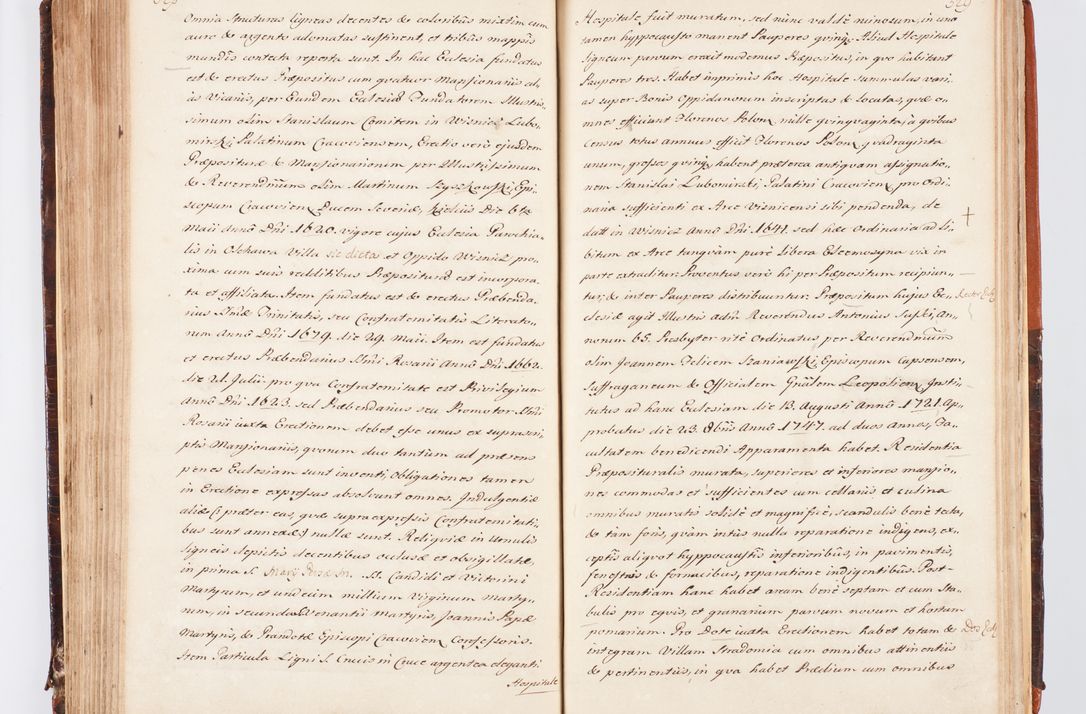 Omnia structuras ligneas decentes & coloribus mixtim cum
auro & argento adornatas sustinent, et tribus mappis
mundis contecta reperta sunt. In hac Eclesia fundatus
est & erectus Præpositus cum quatuor Mansionariis ali,,
as Vicariis, per Eundem Eclesiæ Fundatorem Illustris,,
simum olim Stanislaum Comitem in Wisnicz Lubo,,
mirski, Palatinum Cracoviensem, Erectio verò ejusdem
Præposituræ & Mansionariorum per Illustrissimum
& Reverendmum olim Martinum Szyszkowski, Epi,,
scopum Cracovien, Ducem Severiæ, Kielciis Die 6ta
Maii Anno Dni 1620. vigore cujus Eclesia Parochia,,
lis in Olchawa Villa sic dicta et Oppido Wisnicz pro,,
xima cum suis redditibus Præposituræ est incorpora,,
ta et affiliata. Item fundatus est & erectus Præbenda,,
rius SSmæ Trinitatis, seu Confraternitatis Literato,,
rum Anno Dni 1674. die 29. Maii. Item est fundatus
et erectus Præbendarius SSmi Rosarii Anno Dni 1662.
die 21. Julii. pro qua Confraternitate est Privilegium
Anno Dni 1623. sed Præbendarius seu Promotor SSmi
Rosarii iuxta Erectionem debet esse unus ex suprascri,,
ptis Mansionariis, quorum duo tantium ad præsens
penes Eclesiam sunt inventi, Obligationes tamen
in Erectione expressas absolvunt omnes. Indulgentiæ
aliæ (: præter eas, quæ supra expressis Confraternitati,,
bus sunt annexæ :) nullæ sunt. Reliquiæ in Urnulis
ligneis depictis decentibus oclusæ et obsigillatæ,
in prima S. SS. Candidi et Victorini
Martyrum, et undecim millium Virginum Marty,,
rum, in secunda S. Venantii Martyris, Joannis Papæ
Martyris, & Prandotæ Episcopi Cracovien, Confessoris.
Item Particula Ligni S. Crucis in Cruce argentea eleganti.
Hospitale
549
Hospitale fuit muratum, sed nunc valdè ruinosum, in uno
tamen hyppocausto manent Pauperes quinq, Aliud Hospitale
ligneum parvum erexit modernus Præpositus, in quo habitant
Pauperes tres. Habet inprimis hoc Hospitale summulas vari,,
as super Bonis Oppidanorum inscriptas & locatas, quæ o,,
mnes efficiunt Florenos Polon, mille quinquaginta, à quibus
census totus annuus efficit Florenos Polon, quadraginta
unum, grosses quinq, habent præterea antiquam assignatio,,
nem Stanislai Lubomirski, Palatini Cracovien, pro Ordi,,
naria sufficienti ex Arce Visnicensi sibi pendenda, de
datt in Wisnicz Anno Dni 1641. sed hæc Ordinaria ad li,,
bitum ex Arce tanquam purè Libera Eleemosyna vix in
parte extraditur. Proventus verò hi per Præpositum recipiun,,
tur, & inter Pauperes distribuuntur. Præpositum hujus Ec,,
clesiæ agit Illustris Adm Reverendus Antonius Suski, An,,
norum 65. Presbyter ritè Ordinatus per Reverendmum
olim Joannem Felicem Szaniawski, Episcopum Capsensem,
Suffraganeum & Officialem Gnalem Leopolien, Insti,,
tutus ad hanc Eclesiam die 13. Augusti Anno 1721. Ap,,
probatus die 23. 8bris Anno 1747. ad duos annos, Fa,,
cultatem benedicendi Apparamenta habet. Residentia
Præposituralis murata, superiores et inferiores mansio,,
nes commodas et sufficientes cum cellariis et culina
omnibus muratis solidè et magnificè, scandulis benè tecta,
& tam foris, quàm intùs nulla reparatione indigens, ex,,
ceptis aliquot hyppocaustis inferioribus, in pavimentis,
fenestris & fornacibus, reparatione indigentibus. Post-
Residentiam hanc habet aream benè septam et cum Sta,,
bulis pro equis, et granarium parvum novum et hortum
pomarium. Pro Dote iuxta Erectionem habet totam &
integram Villam Stradomia cum omnibus attinentiis
& pertinentiis, in qua habet Prædium cum omnibus
Rector Ecłæ
Dos Ecłæ